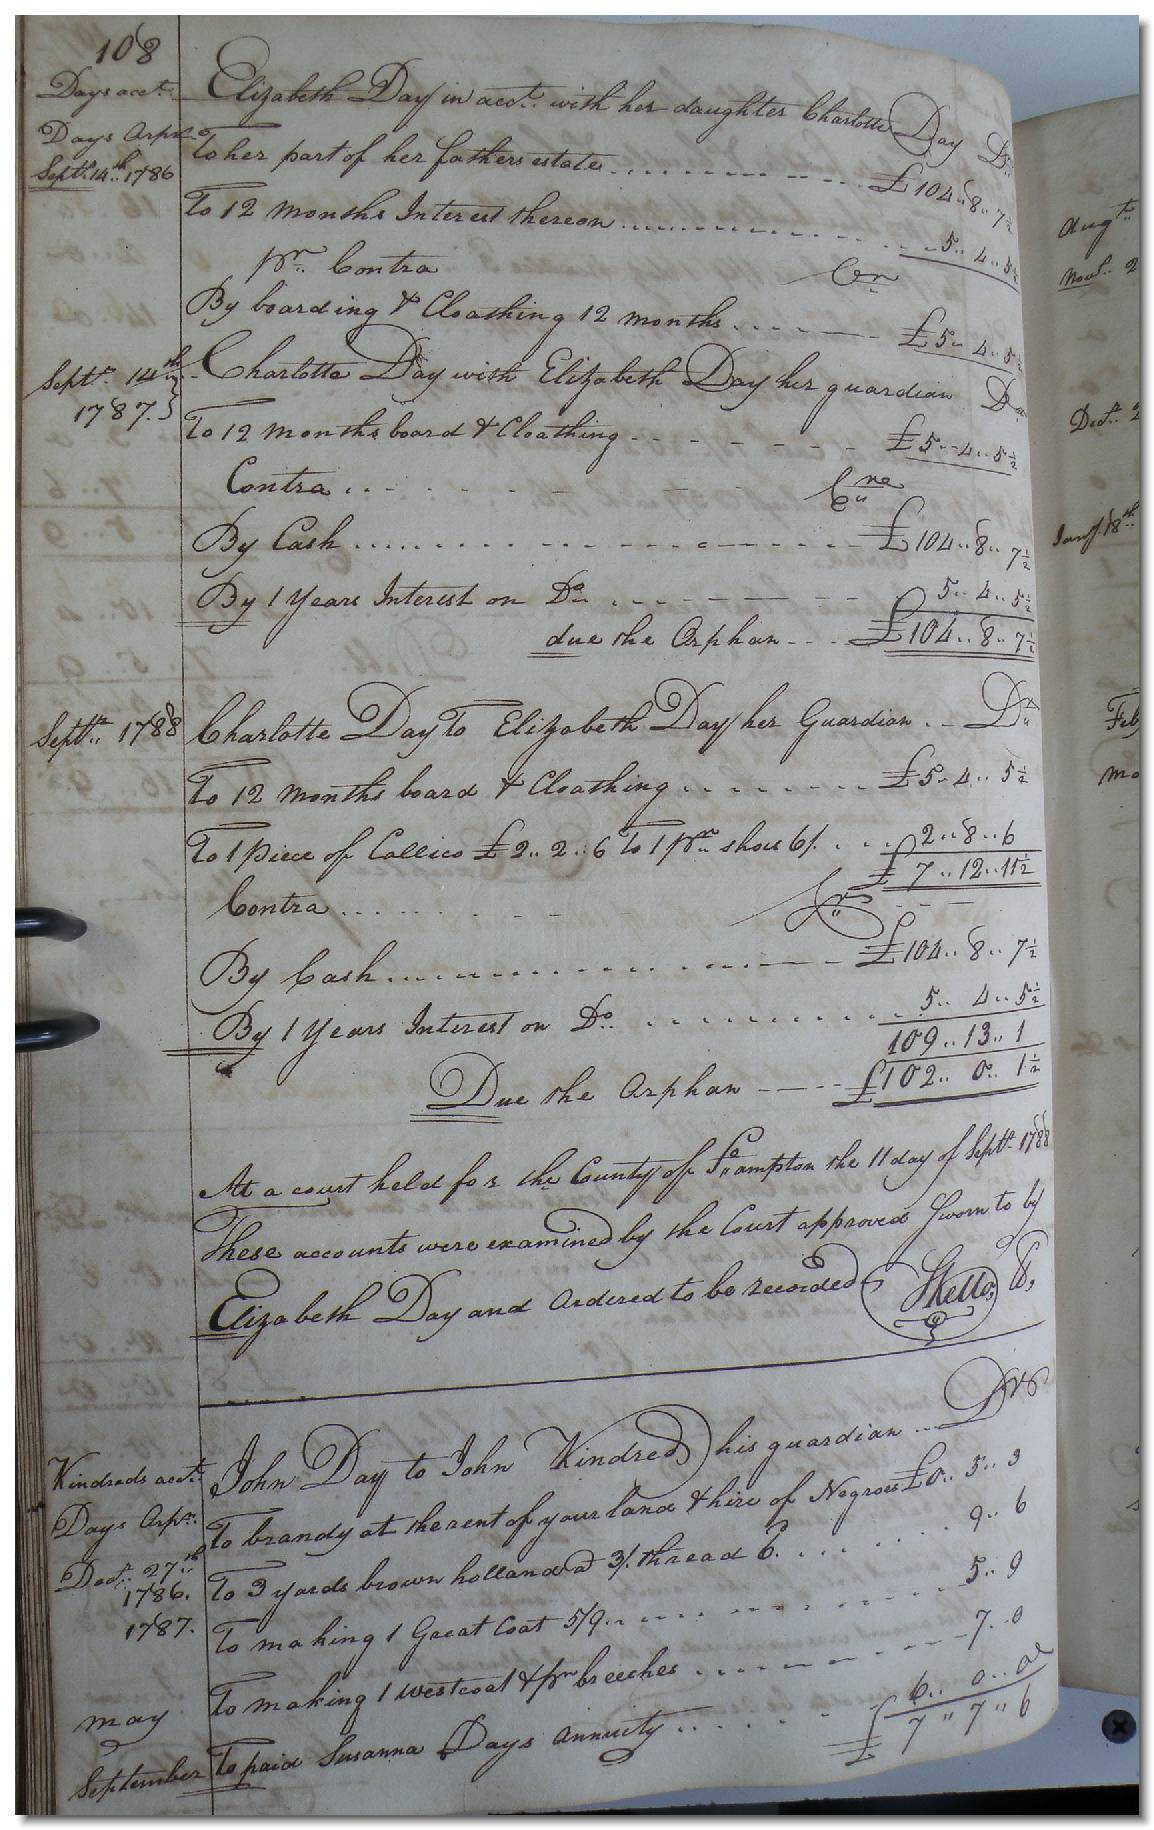 108
Days acct.
Days Orpn.
Sept. 14th 1786
Elizabeth Day in acct. with her daughter Charlotte Day Dr.
To her part of her fathers estate £104..8..7½
To 12 months Interest thereon 5..4..5½
pr. Contra Cr
By boarding & Cloathing 12 months £5..4..5½
Septr. 14th 1787.
Charlotte Day with Elizabeth Day her guardian Dr
To 12 months board & Cloathing £5..4..5½
Contra Cre
By Cash £104..8..7½
By 1 Years Interest on Do. 5..4..5½
due the Orphan £104..8..7½
Septr. 1788
Charlotte Day To Elizabeth Day her Guardian Dr.
To 12 months board & Cloathing £5..4..5½
To 1 piece of Callico £2..2..6 To 1 pr. shous 6/. 2..8..6
£7..12..11½
Contra Cr.
By Cash £104..8..7½
By 1 Years Interest on Do. 5..4..5½
109..13..1
Due the Orphan £102..0..1½
At a court held for the County of So.ampton the 11 day of Septr. 1788
These accounts were examined by the Court approved Sworn to by
Elizabeth Day and Ordered to be recorded
Kindreds acct.
Days Orpn.
Decr. 27th 1786.
1787.
John Day to John Kindred his guardian Dr
To brandy at the rent of your land & hire of Negroes £0..5..3
To 3 yards brown holland @ 3/. thread 6. 9..6
To making 1 Great Coat 5/9. 5..9
To making 1 westcoat & pr breeches 7..0
may
September To paid Susanna Days annuity 6..0..0
£7..7..6
Augt.
Novr. 2
Decr. 2
Jany. 18th
Feb
Ma